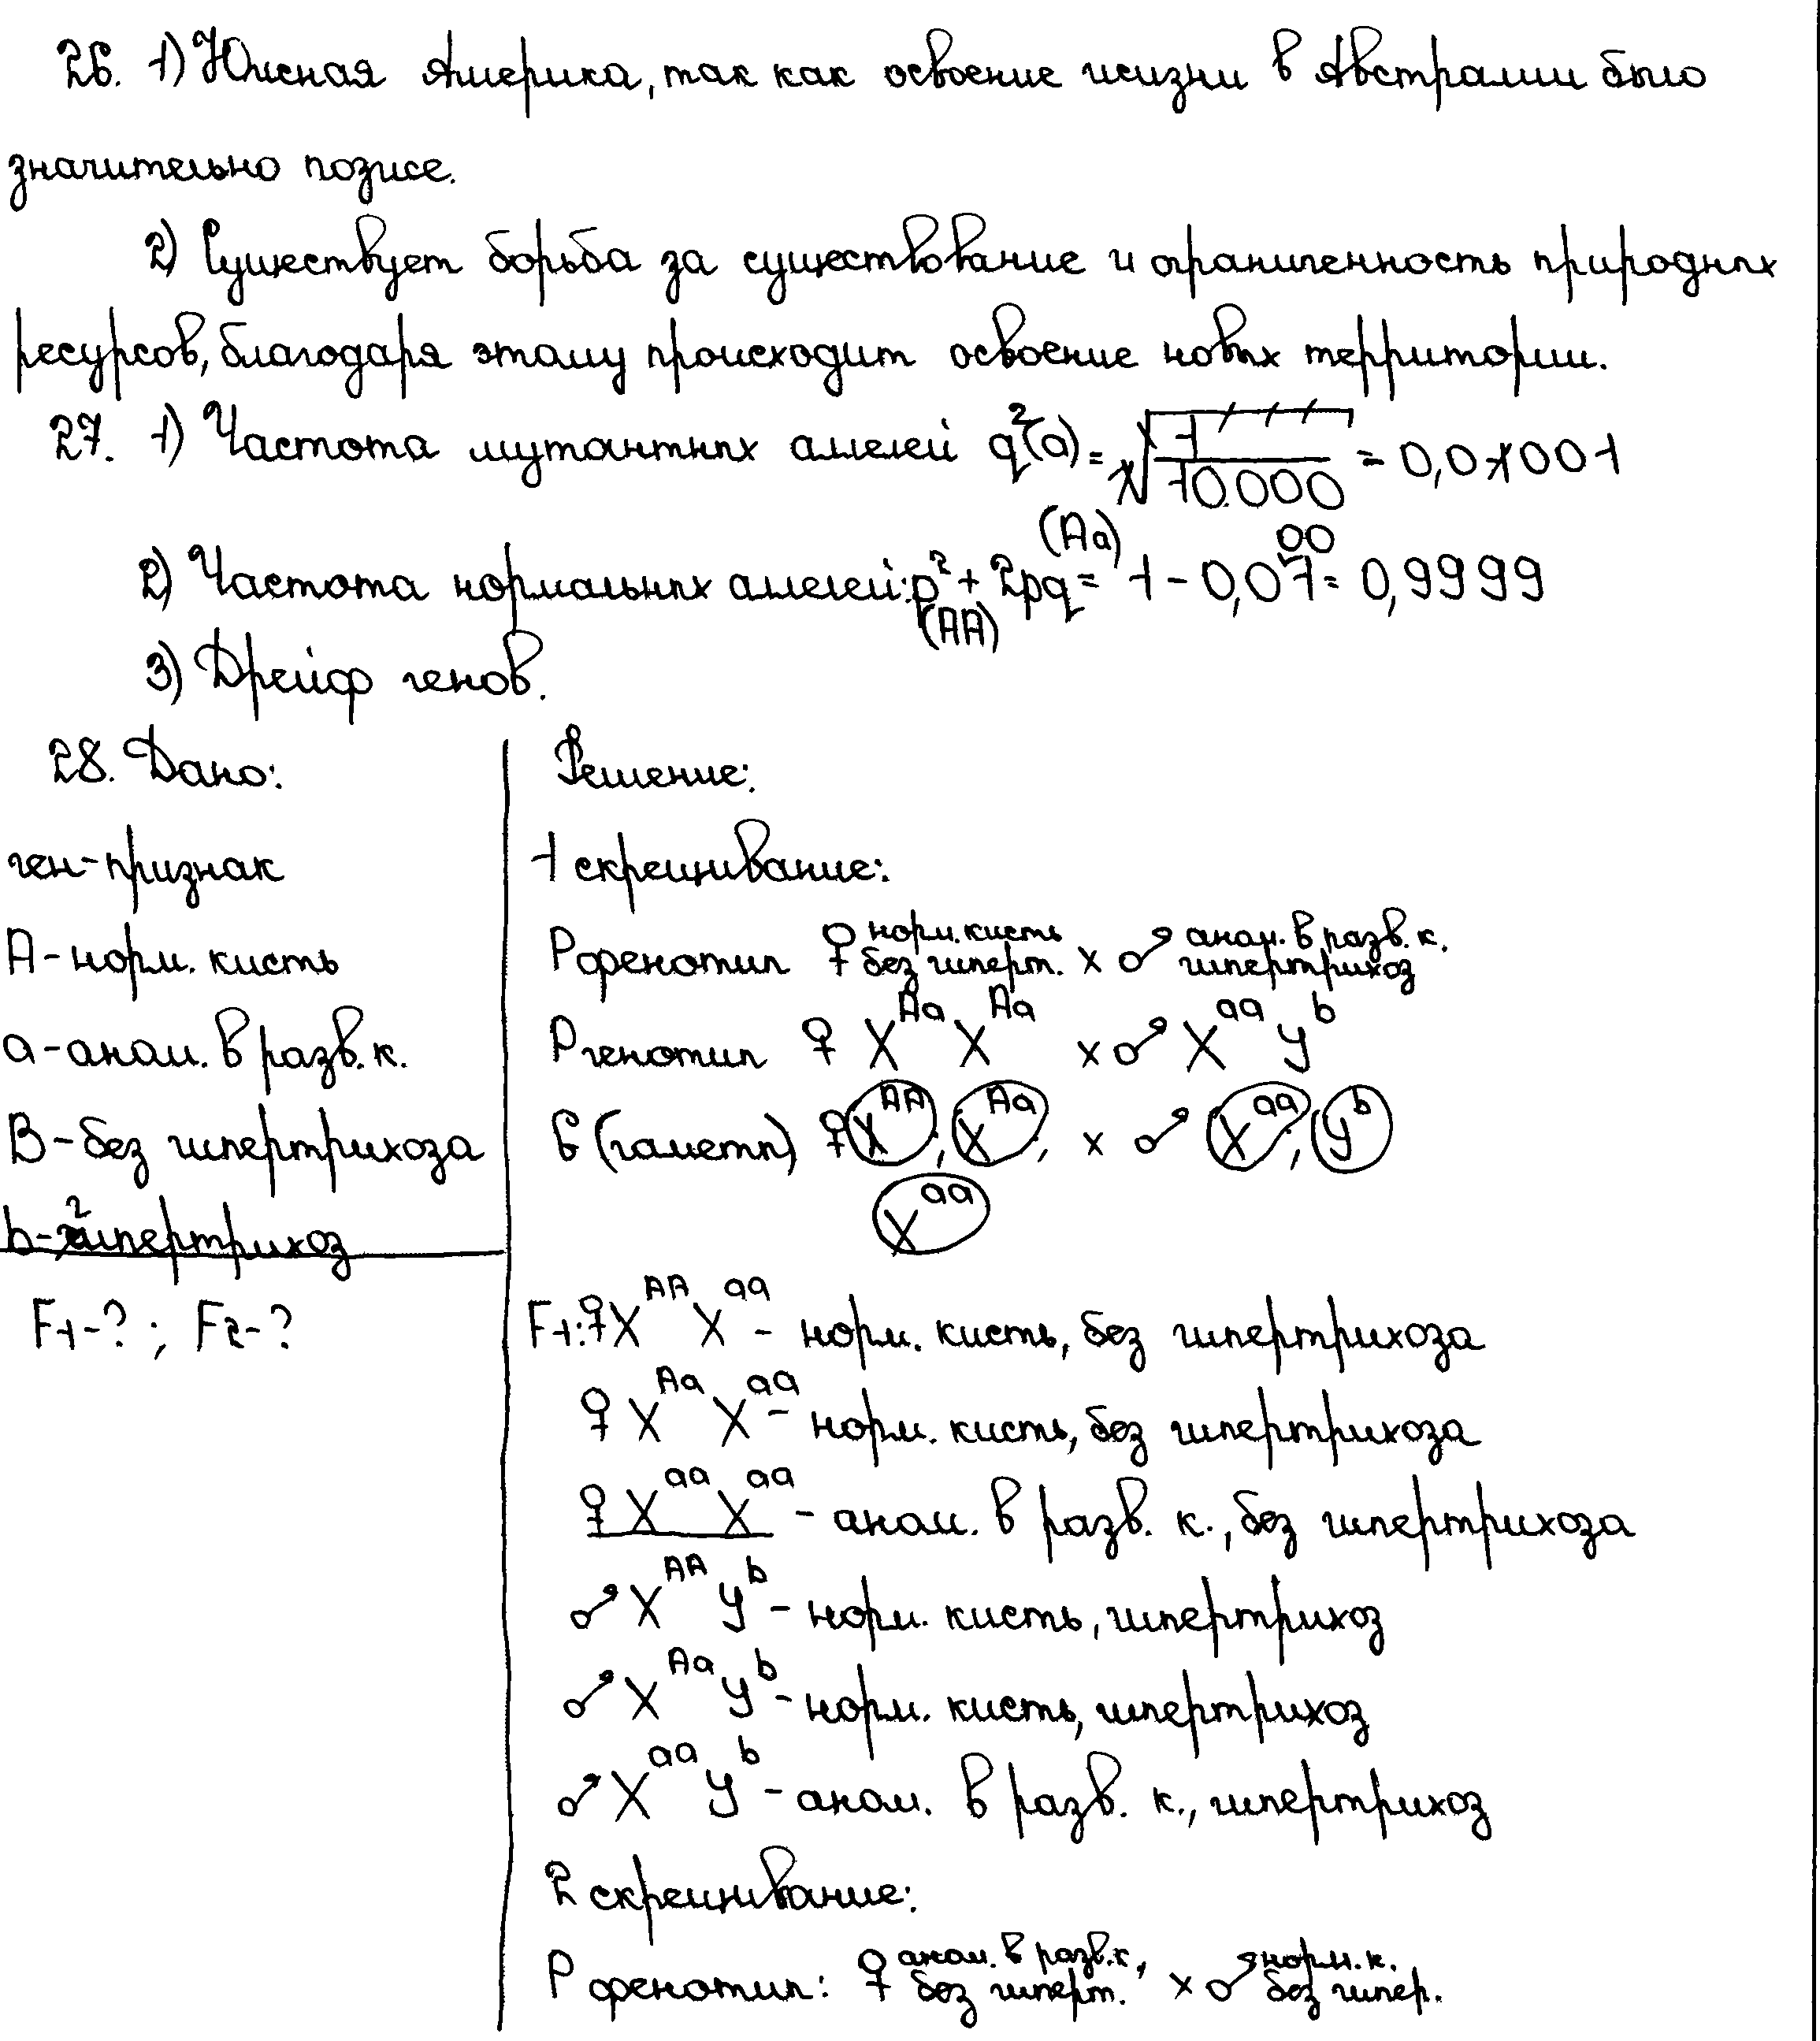 26. 1) Южная Америка, так как освоение жизни в Австралии было
значительно позже.
2) Существует борьба за существование и ограниченность природных
ресурсов, благодаря этому происходит освоение новых территории.
27. 1) Частота мутантных аллелей q²(a) = 1/10.000 = 0,0001
2) Частота нормальных аллелей: p² (AA) + 2pq (Aa) = 1 - 0,0001 = 0,9999
3) Дрейф генов.
28. Дано:
ген-признак
A - норм. кисть
a - аном. в разв. к.
B - без гипертрихоза
b - гипертрихоз
F1 - ? ; F2 - ?
Решение:
1 скрещивание:
P фенотип ♀ норм. кисть без гиперт. x ♂ аном. в разв. к. гипертрихоз
P генотип ♀ X^Aa X^Aa x ♂ X^aa Y^b
G (гаметы) ♀ X^AA ; X^Aa ; x ♂ X^aa ; Y^b
X^aa
F1: ♀ X^AA X^aa - норм. кисть, без гипертрихоза
♀ X^Aa X^aa - норм. кисть, без гипертрихоза
♀ X^aa X^aa - аном. в разв. к., без гипертрихоза
♂ X^AA Y^b - норм. кисть, гипертрихоз
♂ X^Aa Y^b - норм. кисть, гипертрихоз
♂ X^aa Y^b - аном. в разв. к., гипертрихоз
2 скрещивание:
P фенотип: ♀ аном. в разв. к, без гиперт. x ♂ норм. к. без гипер.